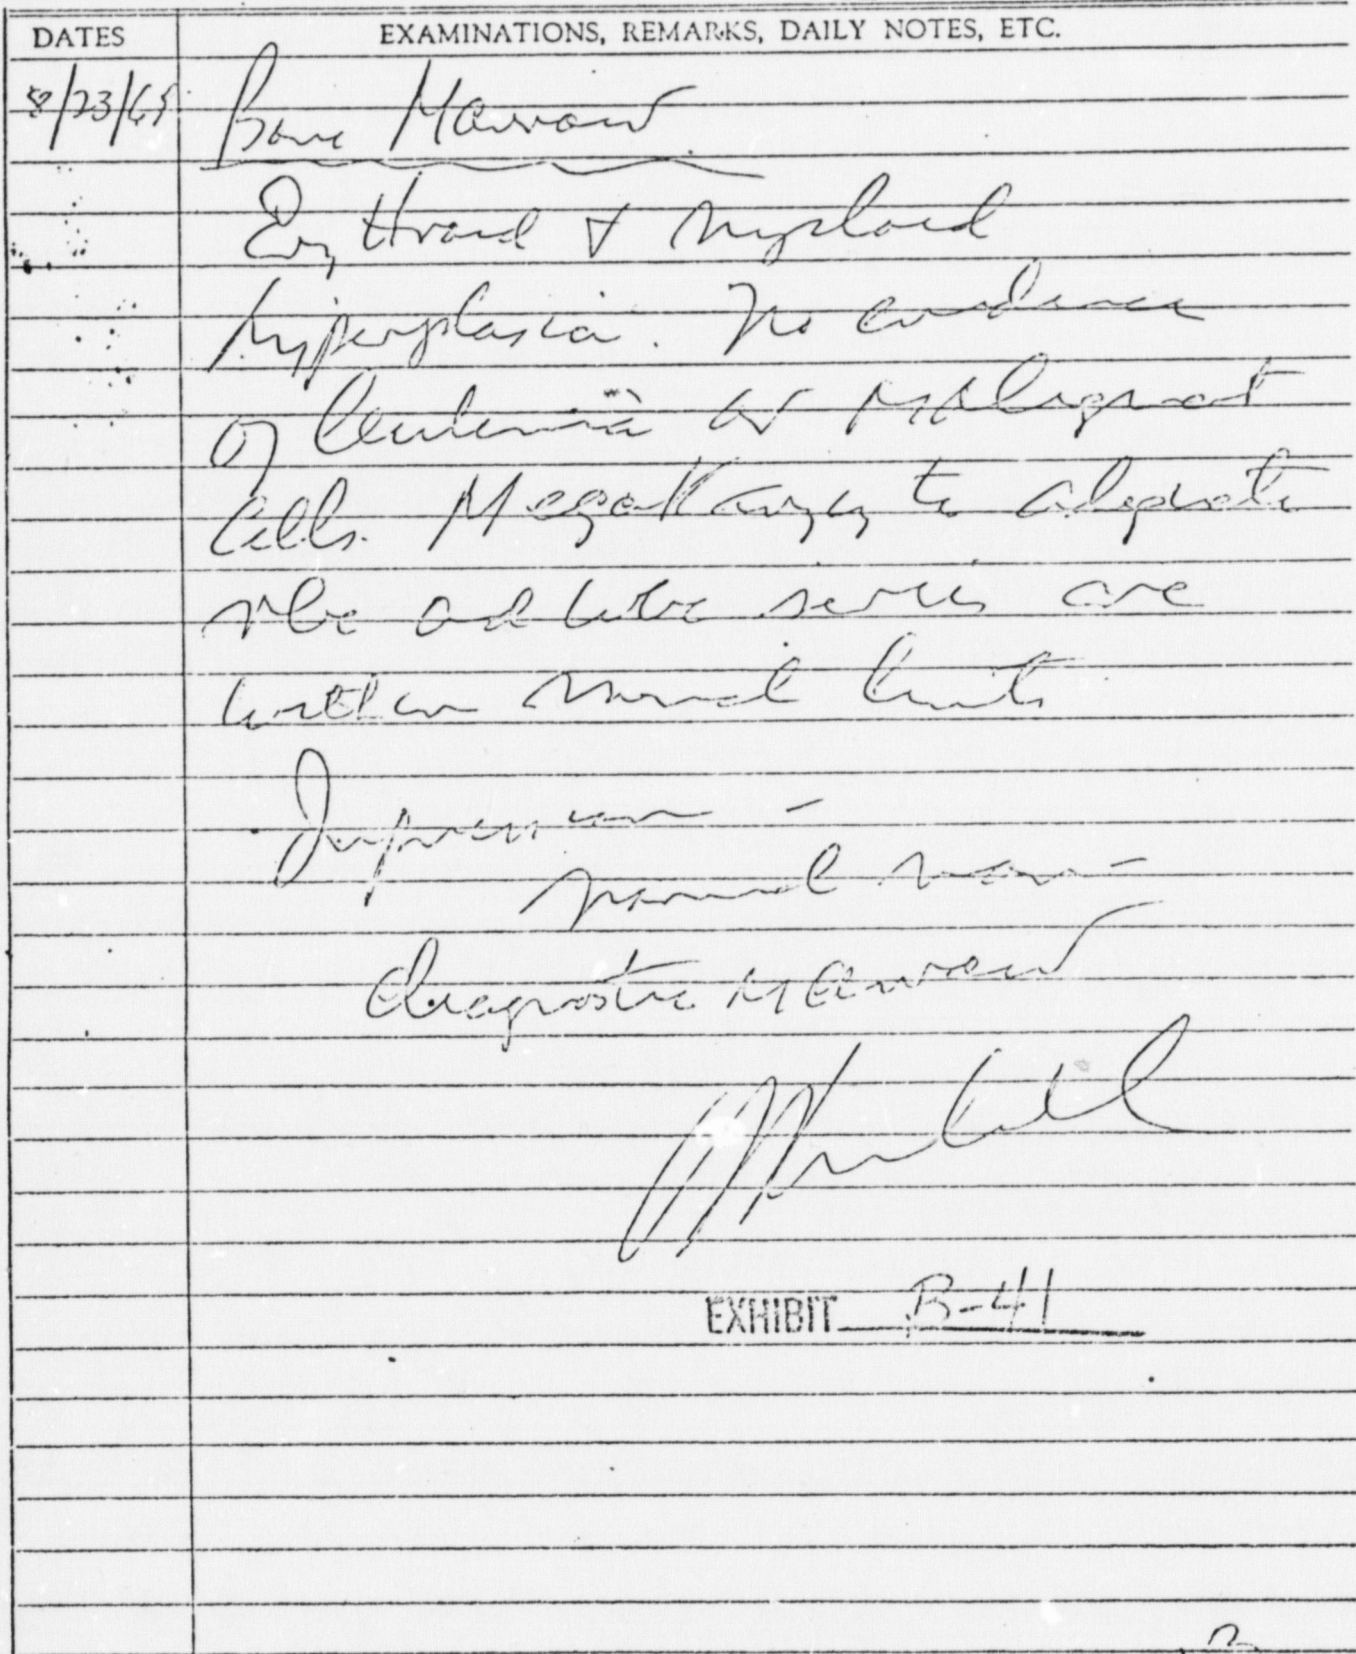 DATES EXAMINATIONS, REMARKS, DAILY NOTES, ETC.
8/23/65 Bone Marrow
Erythroid + myeloid
hyperplasia. No evidence
of leukemia or malignant
cells. Megakaryocyte adequate
rbc and wbc series are
within normal limits
Impression -
normal non-
diagnostic marrow
EXHIBIT B-41